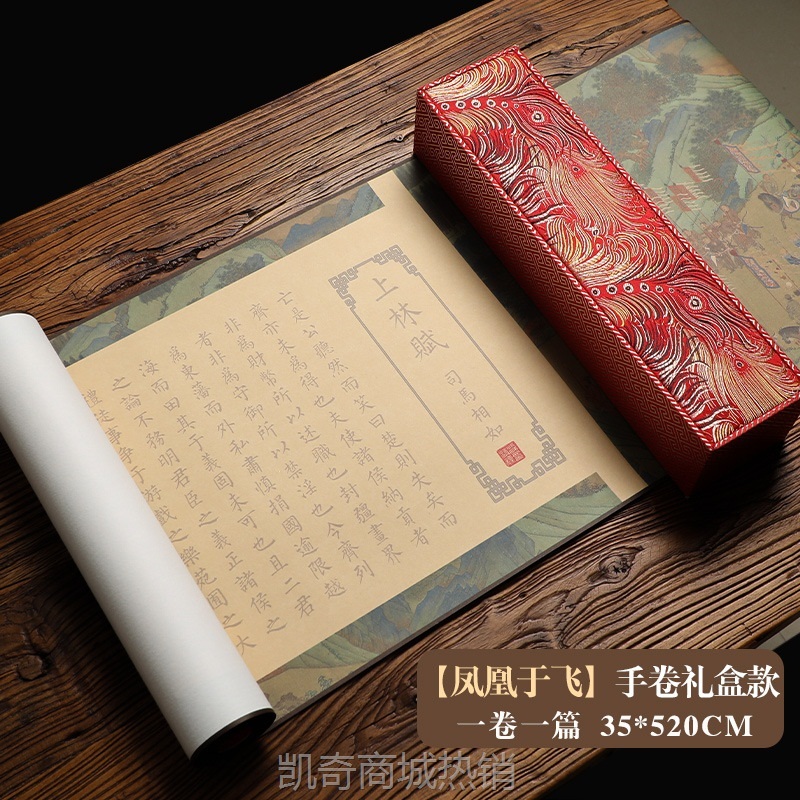 上林賦
司馬相如
亡是公聽然而笑曰楚則失矣而
齊亦未為得也夫使諸侯納貢者
非為財幣所以述職也封疆畫界
者非為守御所以禁淫也今齊列
為東藩而外私肅慎捐國逾限越
海而田其于義固未可也且二君
之論不務明君臣之義正諸侯之
禮徒事爭于游戲之樂苑囿之大
【凤凰于飞】手卷礼盒款
一卷一篇 35*520CM
凯奇商城热销